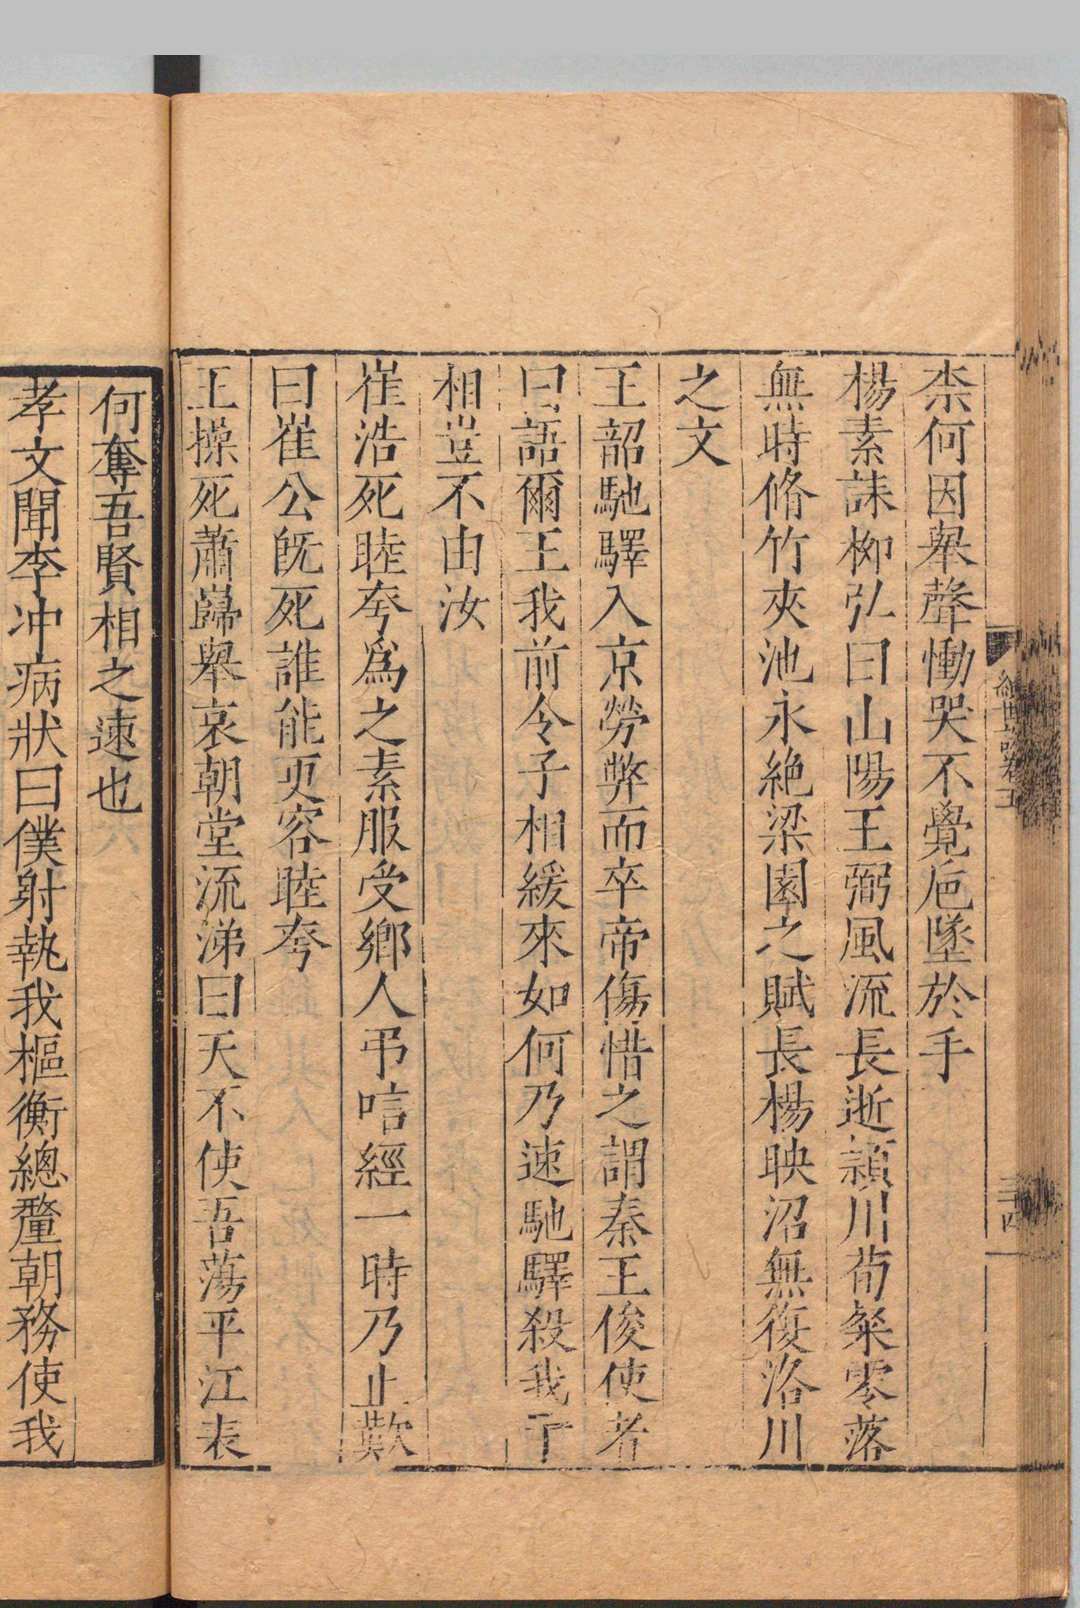 柰何因舉聲慟哭不覺巵墜於手
楊素誄柳弘曰山陽王弼風流長逝潁川荀粲零落
無時脩竹夾池永絕梁園之賦長楊映沼無復洛川
之文
王韶馳驛入京勞弊而卒帝傷惜之謂秦王俊使者
曰語爾王我前令子相緩來如何乃速馳驛殺我子
相豈不由汝
崔浩死眭夸爲之素服受鄉人弔唁經一時乃止歎
曰崔公旣死誰能更容眭夸
王操死蕭巋舉哀朝堂流涕曰天不使吾蕩平江表
何奪吾賢相之速也
孝文聞李冲病狀曰僕射執我樞衡總釐朝務使我